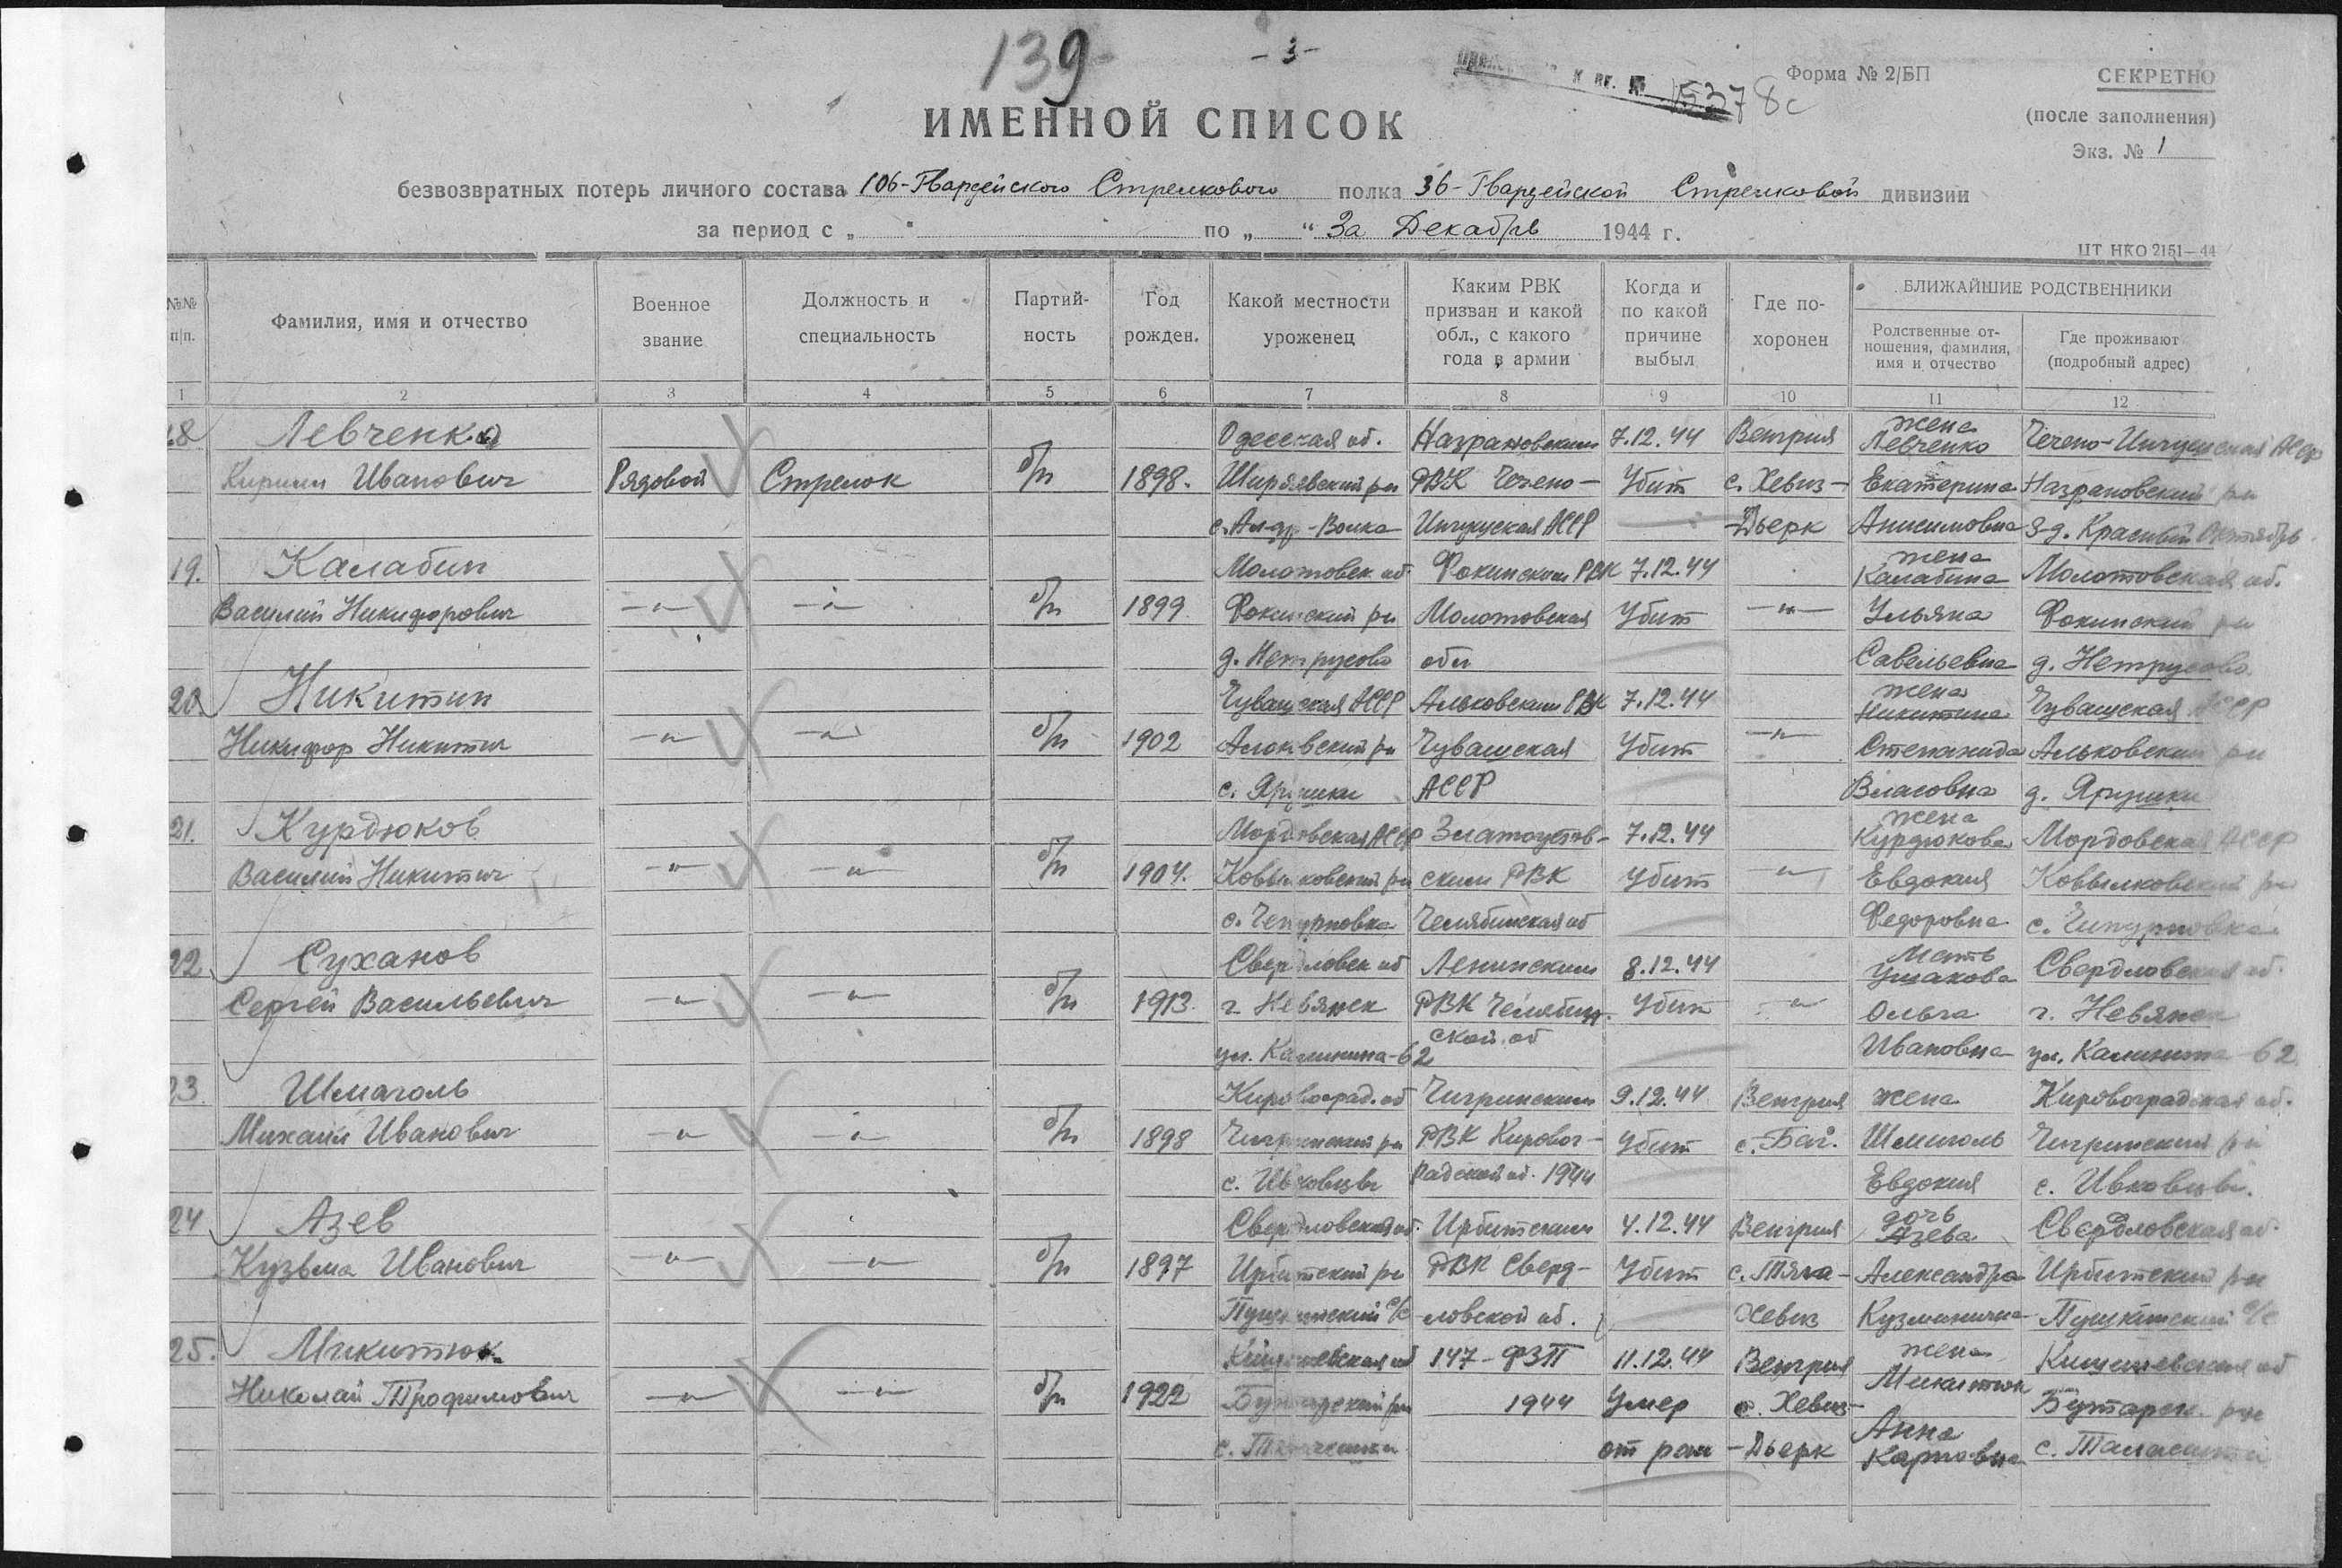 139
- 3 -
к вх. № 15378с
Форма № 2/БП
СЕКРЕТНО
(после заполнения)
Экз. № 1
ИМЕННОЙ СПИСОК
безвозвратных потерь личного состава 106-Гвардейского Стрелкового полка 36-Гвардейской Стрелковой дивизии
за период с „ " по „ “ За Декабрь 1944 г.
ЦТ НКО 2151—44
№№ п/п.
Фамилия, имя и отчество
Военное звание
Должность и специальность
Партий- ность
Год рожден.
Какой местности уроженец
Каким РВК призван и какой обл., с какого года в армии
Когда и по какой причине выбыл
Где по- хоронен
БЛИЖАЙШИЕ РОДСТВЕННИКИ
Родственные от- ношения, фамилия, имя и отчество
Где проживают (подробный адрес)
1 2 3 4 5 6 7 8 9 10 11 12
18 Левченко Одесская об. Назрановским 7.12.44 Венгрия жена Левченко Чечено-Ингушская АССР
Кирилл Иванович Рядовой Стрелок б/п 1898. Ширяевский рн РВК Чечено- Убит с. Хевиз- Екатерина Назрановский рн
Ингушская АССР -Дьерк Анисимовна З-д. Красный Октябрь
19. Калабин Молотовск об. Фокинским РВК 7.12.44 жена Калабина Молотовская об.
Василий Никифорович -"- -"- б/п 1899 Фокинский рн Молотовская Убит -"- Ульяна Фокинский рн
д. Нетрусово обл Савельевна д. Нетрусово
20. Никитин Чувашская АССР Альковским РВК 7.12.44 жена Никитина Чувашская АССР
Никифор Никитич -"- -"- б/п 1902 Чувашская Убит -"- Степанида Альковский рн
с. Ярушки АССР Власовна д. Ярушки
21. Курдюков Мордовская АССР Златоустов- 7.12.44 жена Курдюкова Мордовская АССР
Василий Никитич -"- -"- б/п 1904. Ковылковский рн ским РВК Убит -"- Евдокия Ковылковский рн
с. Чепурновка Челябинская об Федоровна с. Чипурновка
22 Суханов Свердловск об Ленинским 8.12.44 Мать Ушакова Свердловская об.
Сергей Васильевич -"- -"- б/п 1913. г. Невянск РВК Челябин- Убит -"- Ольга г. Невянск
ул. Калинина-62 ской об Ивановна ул. Калинина 62
23. Шмаголь Кировоград. об Чигринским 9.12.44 Венгрия жена Кировоградская об.
Михаил Иванович -"- -"- б/п 1898 Чигринский рн РВК Кировог- Убит с. Баг. Шмиголь Чигринский рн
с. Ивковцы радской об. 1944 Евдокия с. Ивковцы.
24 Азев Свердловская об. Ирбитским 4.12.44 Венгрия дочь Азева Свердловская об.
Кузьма Иванович -"- -"- б/п 1897 Ирбитский рн РВК Сверд- Убит Александра Ирбитский рн
Пушкинский с/с ловской об. Кузминична Пушкинский с/с
25. Микитюк Кишиневская об 147-ФЗП 11.12.44 Венгрия жена Кишиневская об
Николай Трофимович -"- -"- б/п 1922 1944 Умер с. Хевиз- Микитюк
от ран -Дьерк Анна Карповна